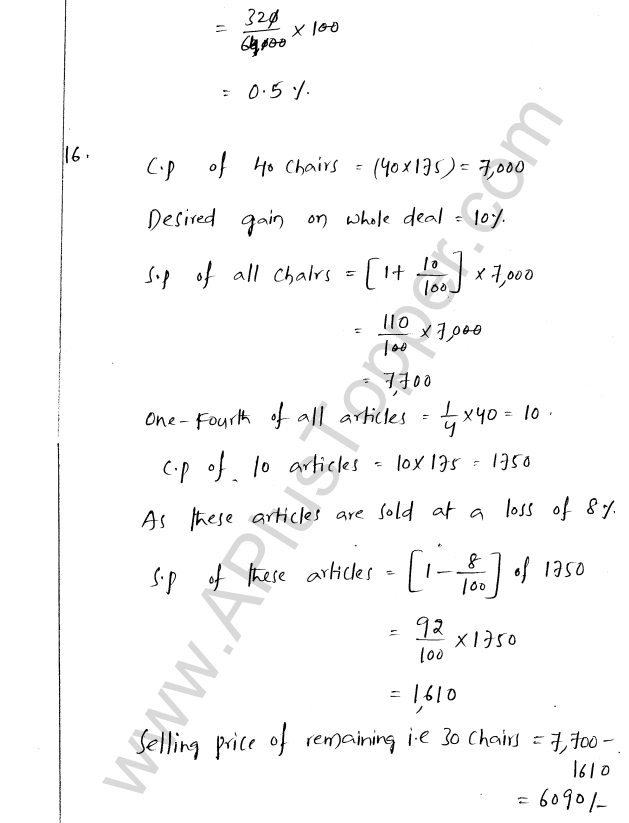 = 320/64,000 × 100
= 0.5 %.
16. C.p of 40 chairs = (40×175) = 7,000
Desired gain on whole deal = 10%.
S.p of all chairs = [1 + 10/100] × 7,000
= 110/100 × 7,000
= 7,700
One-Fourth of all articles = 1/4 × 40 = 10.
C.p of 10 articles = 10×175 = 1750
As these articles are sold at a loss of 8%.
S.p of these articles = [1 - 8/100] of 1750
= 92/100 × 1750
= 1,610
Selling price of remaining i.e 30 chairs = 7,700 -
1610
= 6090/-
www.APlusTopper.com